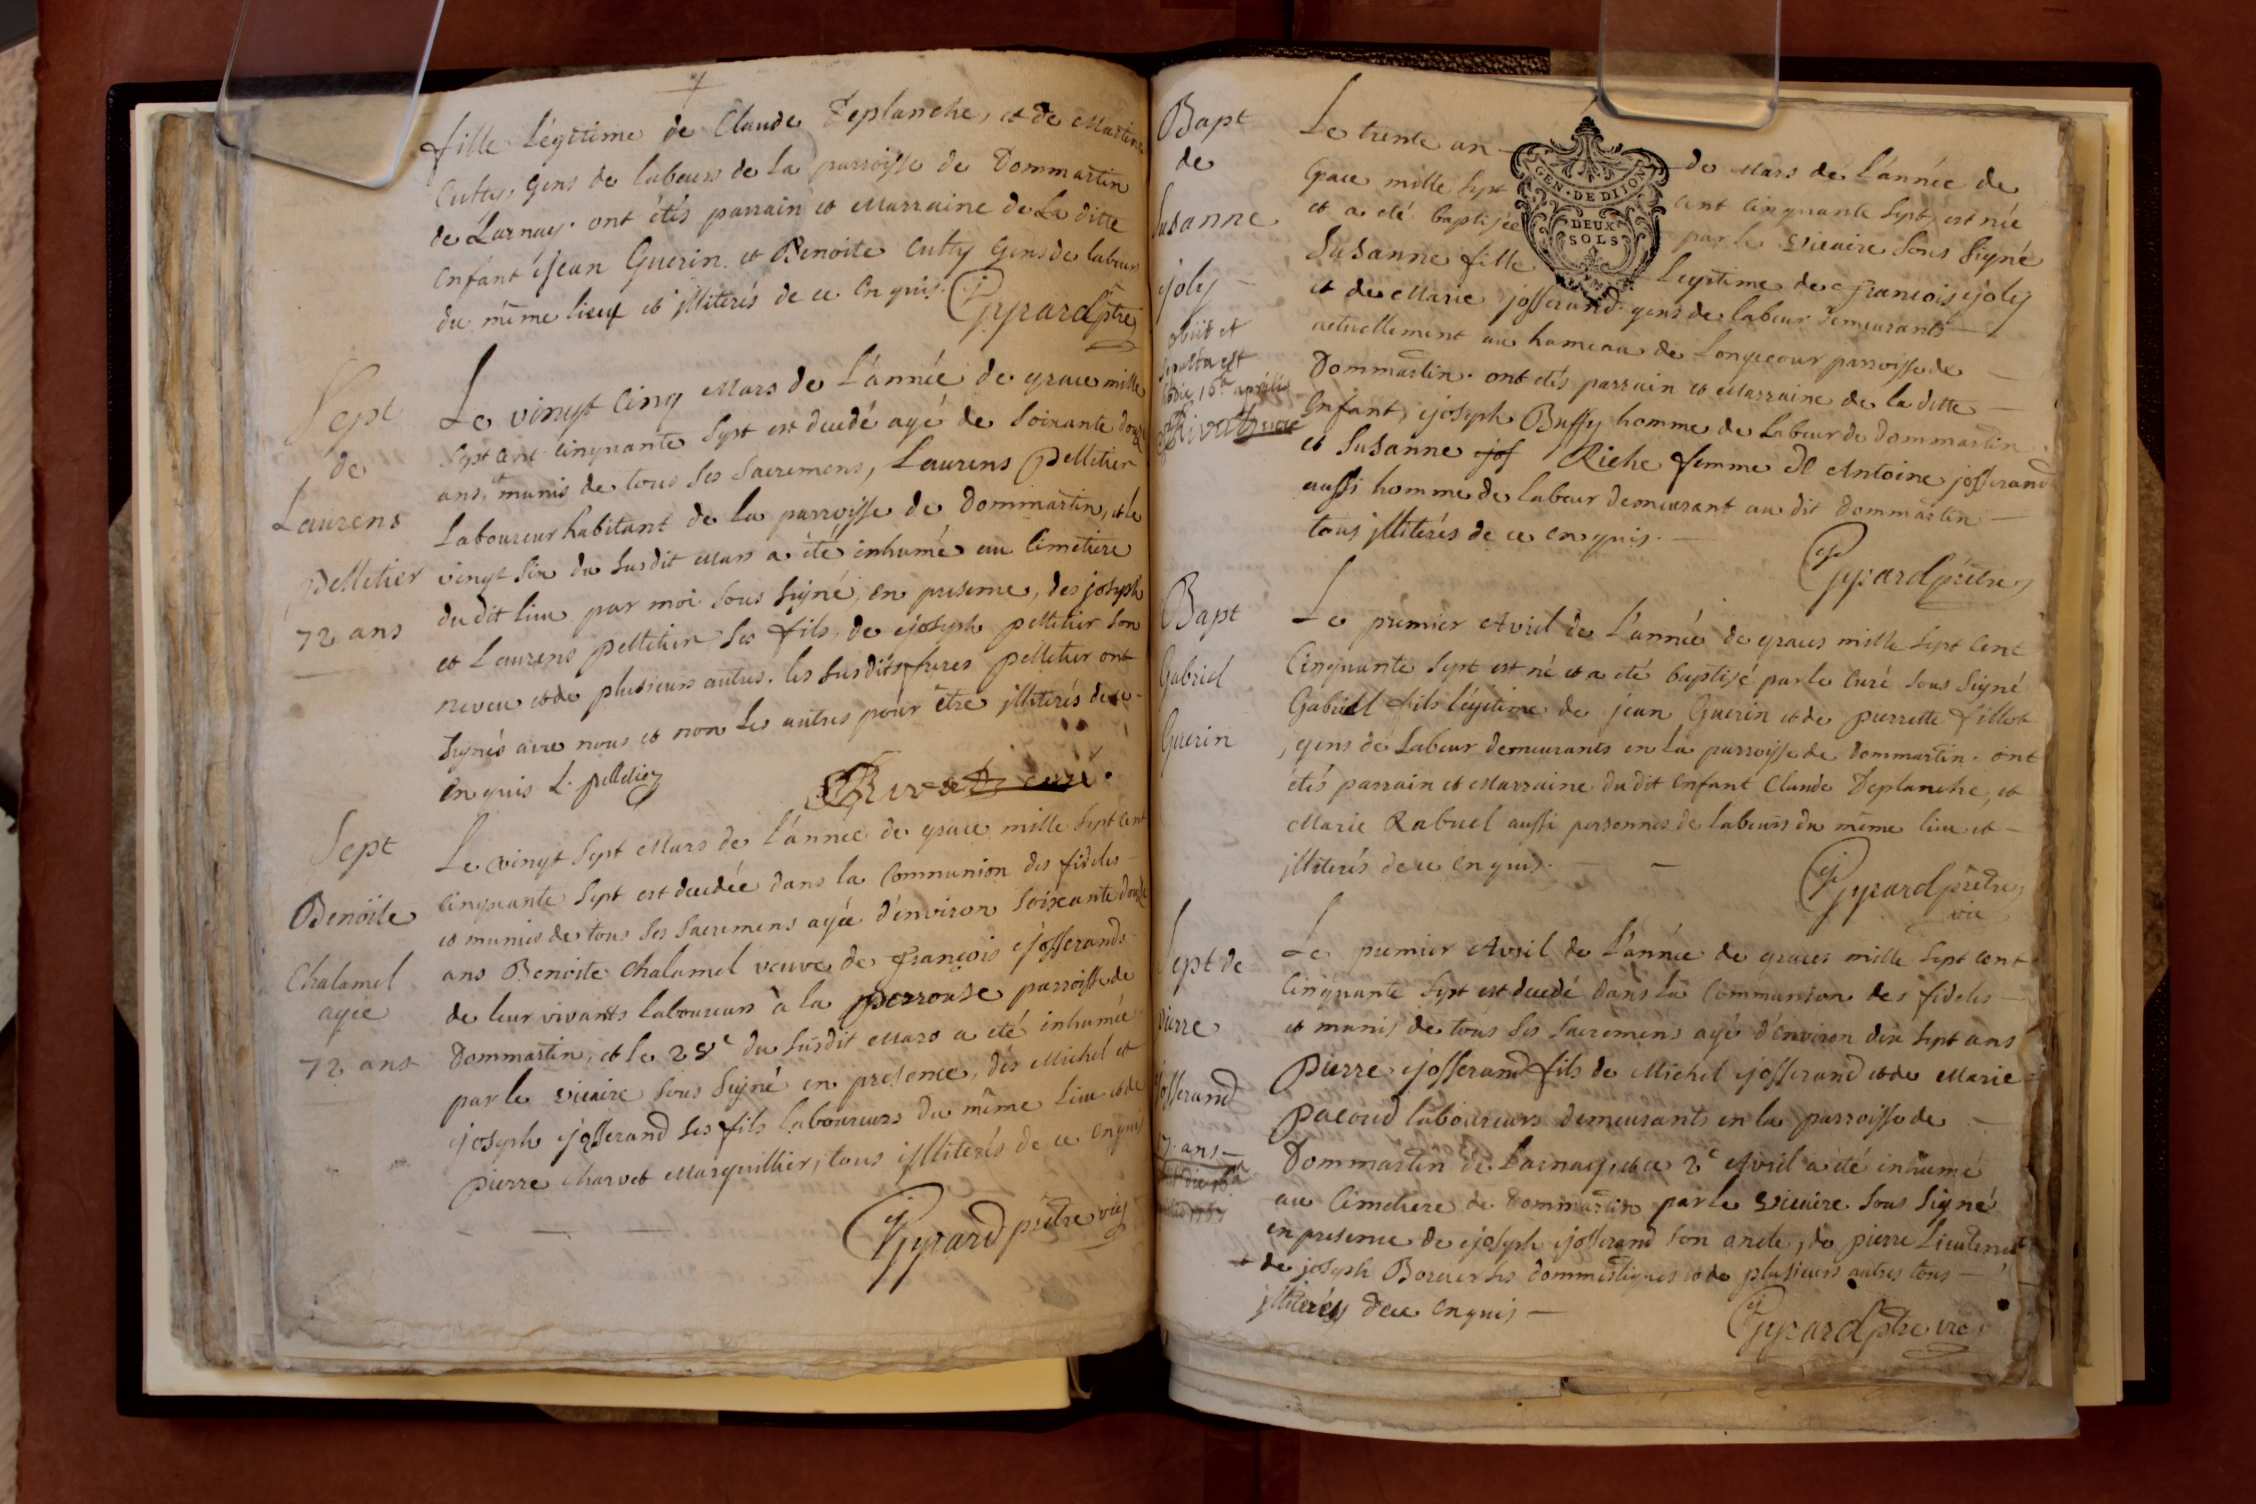 fille Légitime de Claude Deplanche, et de Martine
Cutty, gens de labeurs de la parroisse de Dommartin
de Larnay. ont étés parrain et Marraine de La ditte
enfant jean Guerin et Benoite Cutty gens de labeur
du même lieu et illiterés de ce enquis. Gyrard ptre
Sept
de
Laurens
pelletier
72 ans
Le vingt cinq Mars de L'année de grace mille
Sept cent cinquante Sept est decedé agé de Soixante douze
ans, munis de tous Ses Sacremens, Laurens pelletier
Laboureur habitant de la parroisse de Dommartin, et le
vingt Six du Susdit Mars a été inhumé au Cimetiere
du dit lieu par moi Sous Signé, en presence, des joseph
et Laurens pelletier Ses fils, de joseph pelletier Son
neveu et de plusieurs autres. les Susdits freres pelletier ont
Signés avec nous et non les autres pour être illiterés de ce
enquis L. pelletier Rivat curé.
Sept
Benoite
Chalamel
agée
72 ans
Le vingt Sept Mars de L'année de grace mille Sept cent
cinquante Sept est decedée dans la Communion des fideles
et munies de tous Ses Sacremens agée d'environ Soixante douze
ans Benoite Chalamel veuve de françois josserand
de leur vivants laboureurs à la perrouse parroisse de
Dommartin, et le 28e du Susdit Mars a eté inhumée
par le vicaire Sous Signé en presence, des Michel et
joseph josserand Ses fils laboureurs du même Lieu et de
pierre Charvet Marguillier, tous illiterés de ce enquis
Gyrard prêtre vic
Bapt
de
Susanne
joly
obiit et
sepulta est
hodie 16a aprilis
Rivat curé
Le trente un de Mars de L'année de
Grace mille Sept cent cinquante Sept, est née
et a eté baptisée par le vicaire Sous Signé
Susanne fille Legitime de françois joly
et de Marie josserand gens de labeur demeurants
actuellement au hameau de Longecour parroisse de
Dommartin. ont etés parrain et Marraine de la ditte
Enfant, joseph Buffy homme de Labeur de Dommartin
et Susanne jos Riche femme d'Antoine josserand
aussi homme de labeur demeurant au dit Dommartin
tous illiterés de ce enquis.
Gyrard prêtre
GEN. DE DIJON
DEUX
SOLS
Bapt
Gabriel
Guerin
Le premier Avril de L'année de graces mille Sept Cent
Cinquante Sept est né et a eté baptisé par le Curé Sous Signé
Gabriel fils légitime de jean Guerin et de pierrette fillot
, gens de Labeur demeurants en la parroisse de Dommartin. ont
etés parrain et Marraine du dit enfant Claude Deplanche, et
Marie Rabuel aussi personnes de labeurs du même lieu et
illiterés de ce enquis.
Gyrard prêtre
vic
Sept de
pierre
josserand
17 ans
Le premier Avril de L'année de graces mille Sept cent
Cinquante Sept est decedé dans la Communion des fideles
et munis de tous Ses Sacremens agé d'environ dix Sept ans
Pierre josserand fils de Michel josserand et de Marie
Pacoud laboureurs demeurants en la parroisse de
Dommartin de Larnay, et ce 2e Avril a été inhumé
au Cimetiere de Dommartin par le vicaire Sous Signé
en presence de joseph josserand Son oncle, de pierre Lieutenet
et de joseph Borcier Ses dommestiques et de plusieurs autres tous
illiterés de ce enquis
Gyrard ptre vic